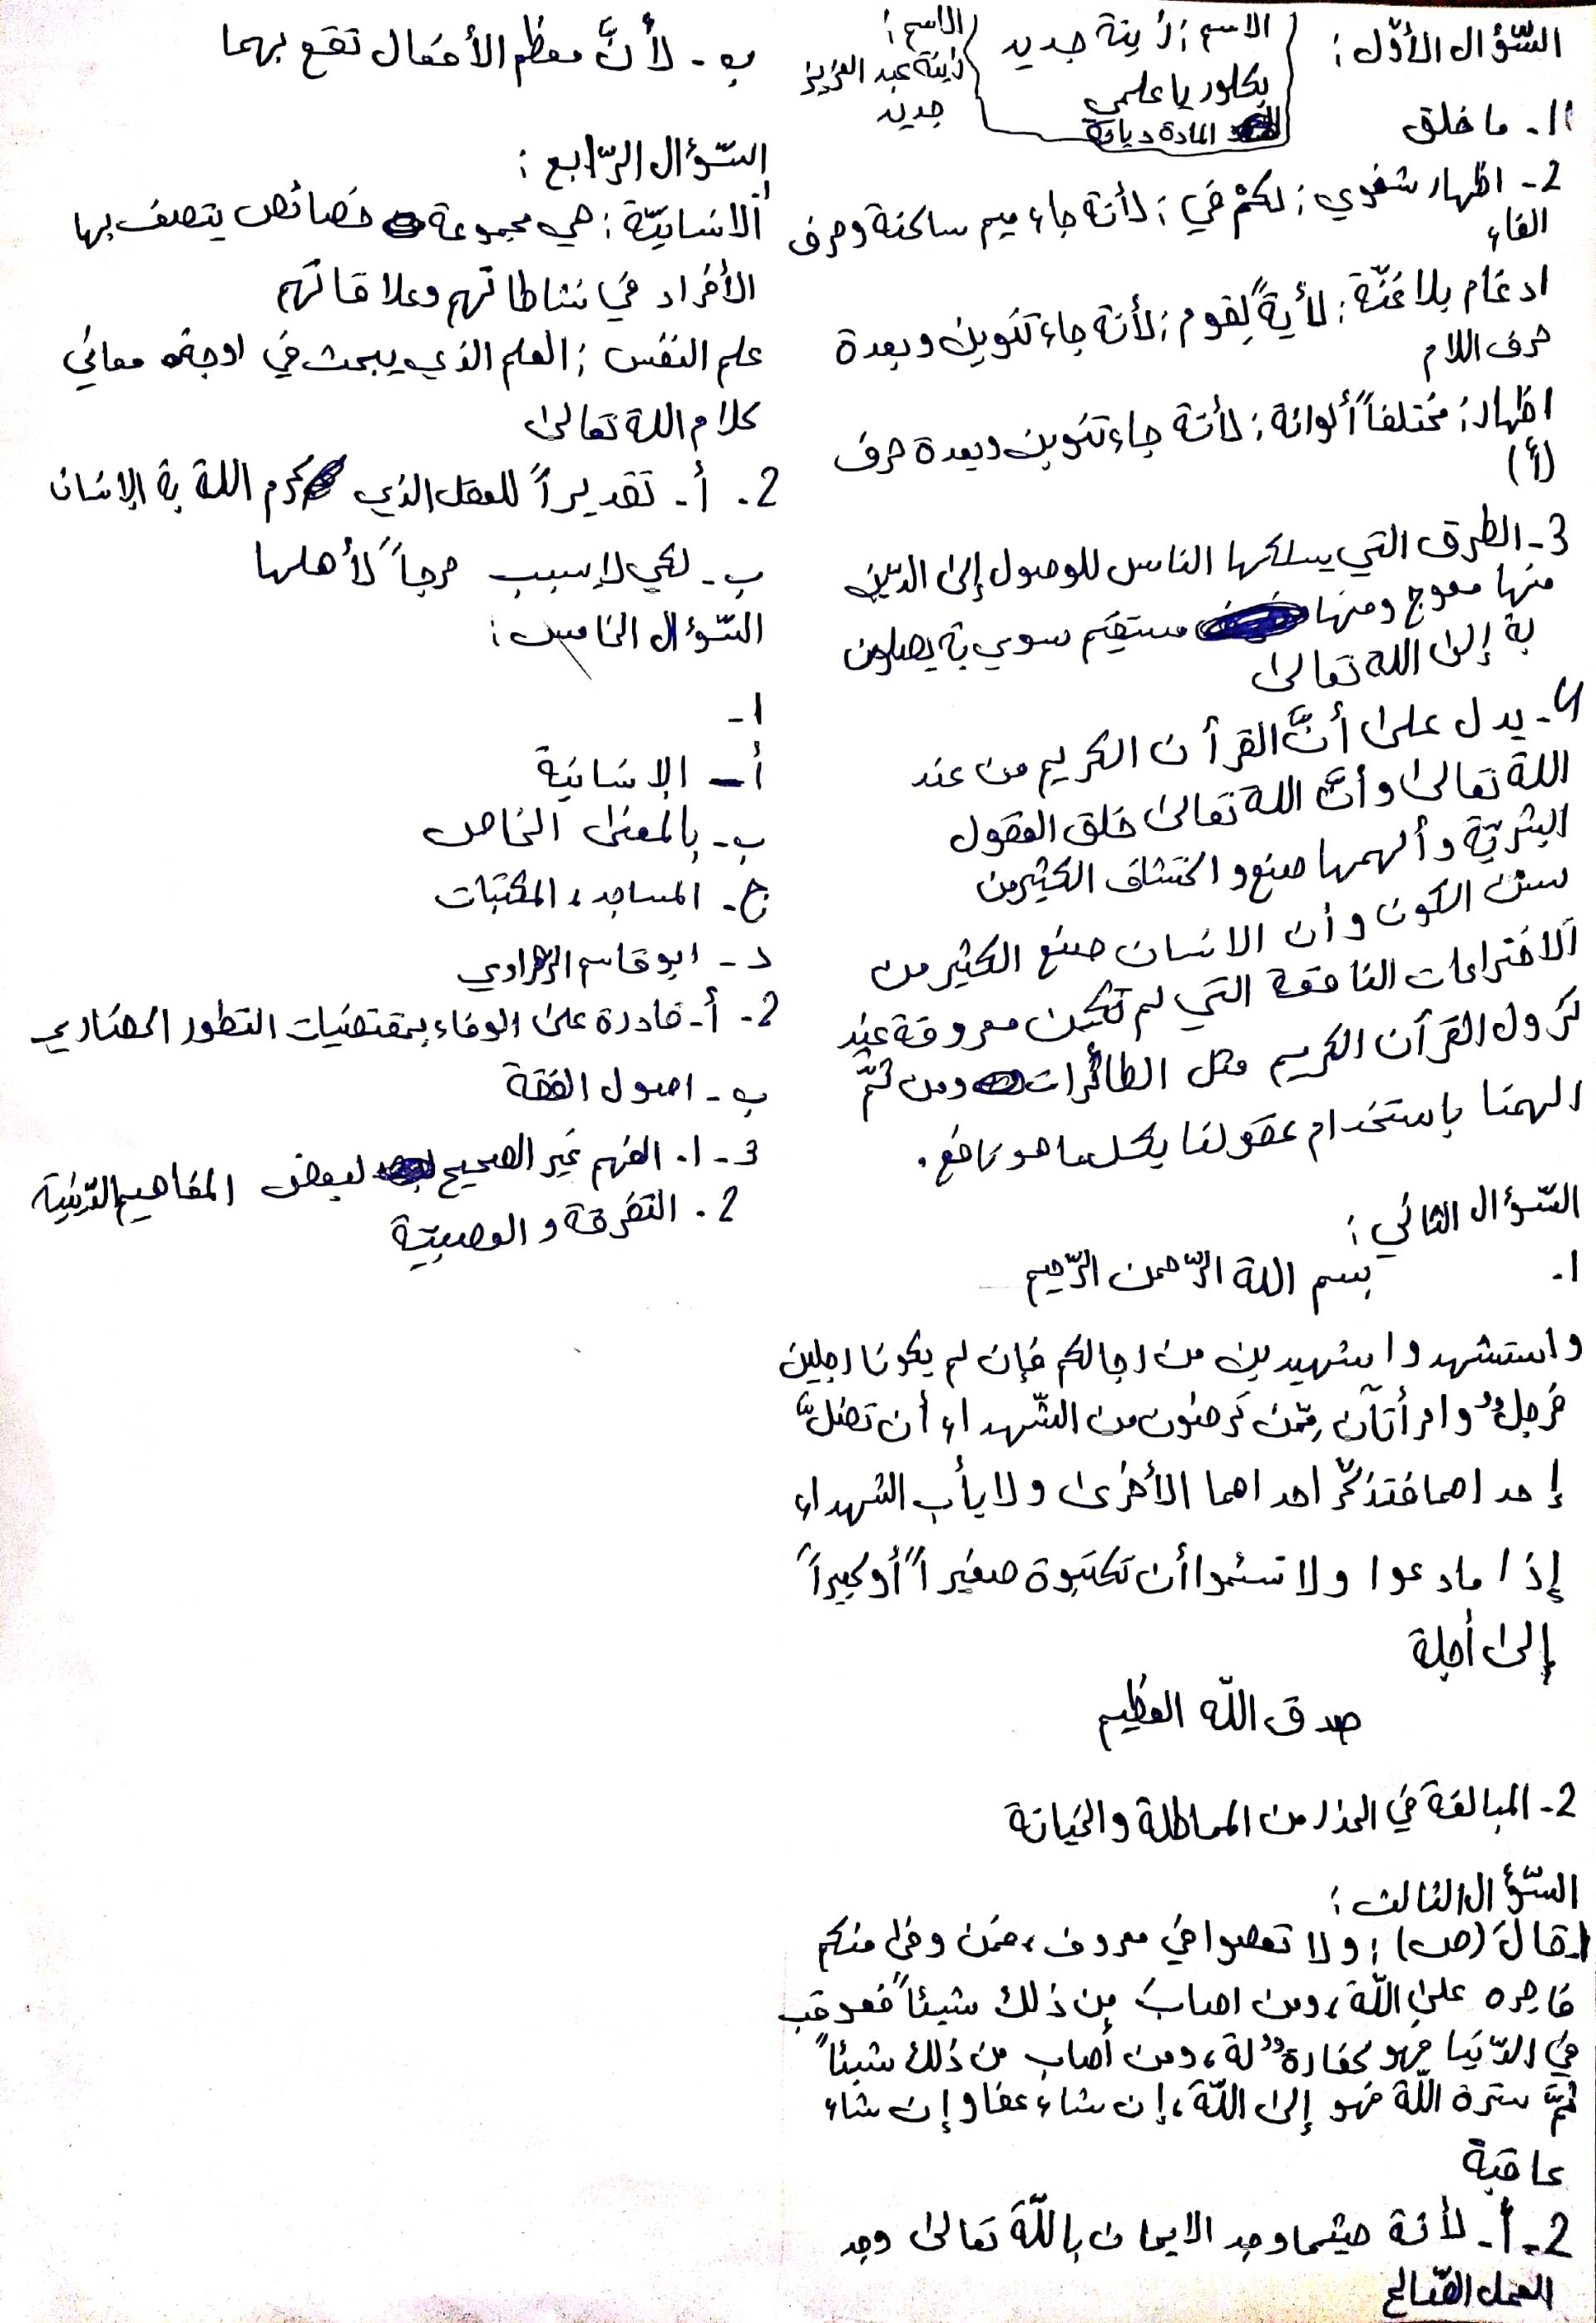 السّؤال الأوّل :
الاسم : زينة جديد
بكلوريا علمي
المادة ديانة
الاسم :
زينة عبد العزيز
جديد
1- ما خلق
2- اظهار شفوي : لكمْ في : لأنة جاء ميم ساكنة وحرف
الفاء
ادغام بلا غنّة : لأيةً لِقوم : لأنة جاء تنوين وبعدة
حرف اللام
اظهار : مختلفاً ألوانة : لأنة جاء تنوين وبعدة حرف
(أ)
3- الطرق التي يسلكها الناس للوصول إلى الدّين
منها معوج ومنها مستقيم سوي بة يصلون
بة إلى الله تعالى
4- يدل على أنَّ القرآن الكريم من عند
اللة تعالى وأنَّ اللة تعالى خلق العقول
البشريّة وألهمها صنع و اكتشاف الكثير من
سنن الكون وأن الانسان صنع الكثير من
الاختراعات النافعة التي لم تكن معروفة عند
نزول القرآن الكريم مثل الطائرات ومن ثمَّ
الهمنا باستخدام عقولنا بكل ما هو نافع .
السّؤال الثاني :
1.
بسم اللة الرّحمن الرّحيم
واستشهدوا شهيدين من رجالكم فإن لم يكونا رجلين
فرجلٌ وامرأتان ممّن ترضون من الشّهداء أن تضلَّ
إحداهما فتذكّر احداهما الأخرى ولا يأب الشهداء
إذا مادعوا ولا تسئموا أن تكتبوة صغيراً أو كبيراً
إلى أجلة
صدق اللّه العظيم
2- المبالغة في الحذر من المماطلة والخيانة
السّؤال الثالث :
1- قال (ص) : ولا تعصوا في معروف ، فمن وفى منكم
فاجره على اللّة ، ومن اصاب من ذلك شيئاً فعوقب
في الدّنيا فهو كفارةٌ لة ، ومن أصاب من ذلك شيئاً
ثمَّ سترة اللّة فهو إلى اللّة ، إن شاء عفا وإن شاء
عاقبة
2- أ- لأنة حيثما وجد الايمان باللّة تعالى وجد
العمل الصّالح
ب - لأنَّ معظم الأفعال تقع بهما
السّؤال الرّابع :
1. الانسانيّة : هي مجموعة خصائص يتصف بها
الأفراد في نشاطاتهم وعلاقاتهم
علم النفس : العلم الذي يبحث في اوجة معاني
كلام اللة تعالى
2. أ- تقديراً للعقل الذي كرم اللة بة الإنسان
ب - لكي لا يسبب حرجاً لأهلها
السّؤال الخامس :
1-
أ - الإنسانية
ب - بالمعنى الخاص
ج - المساجد ، المكتبات
د - ابو قاسم الزهراوي
2- أ- قادرة على الوفاء بمقتضيات التطور الحضاري
ب - اصول الفقة
3- 1. الفهم غير الصحيح لبعض المفاهيم الدّينية
2. التفرقة والعصبيّة